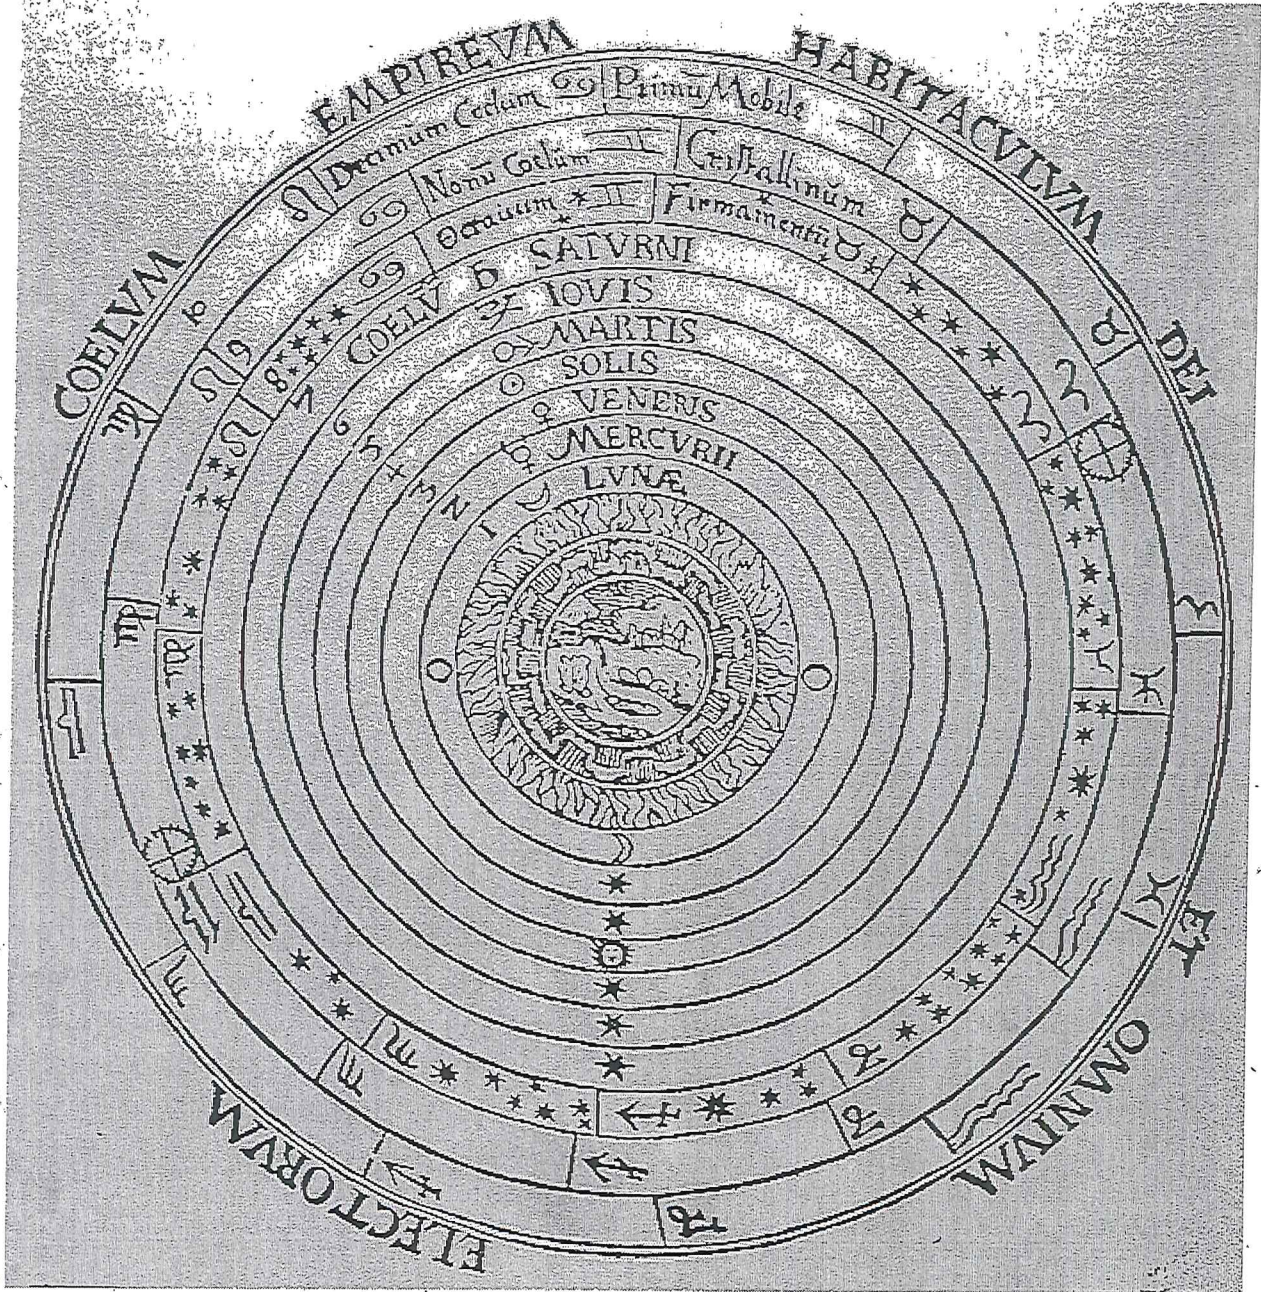 COELVM EMPIREVM HABITACVLVM DEI ET OMNIVM ELECTORVM
10 Decimum Coelum ♋ Primū Mobile
9 Nonū Coelum ♊ Cristallinum
8 Octauum ♊ Firmamentū
7 COELV ♄ SATVRNI
6 ♃ IOVIS
5 ♂ MARTIS
4 ☉ SOLIS
3 ♀ VENERIS
2 ☿ MERCVRII
1 ☽ LVNÆ